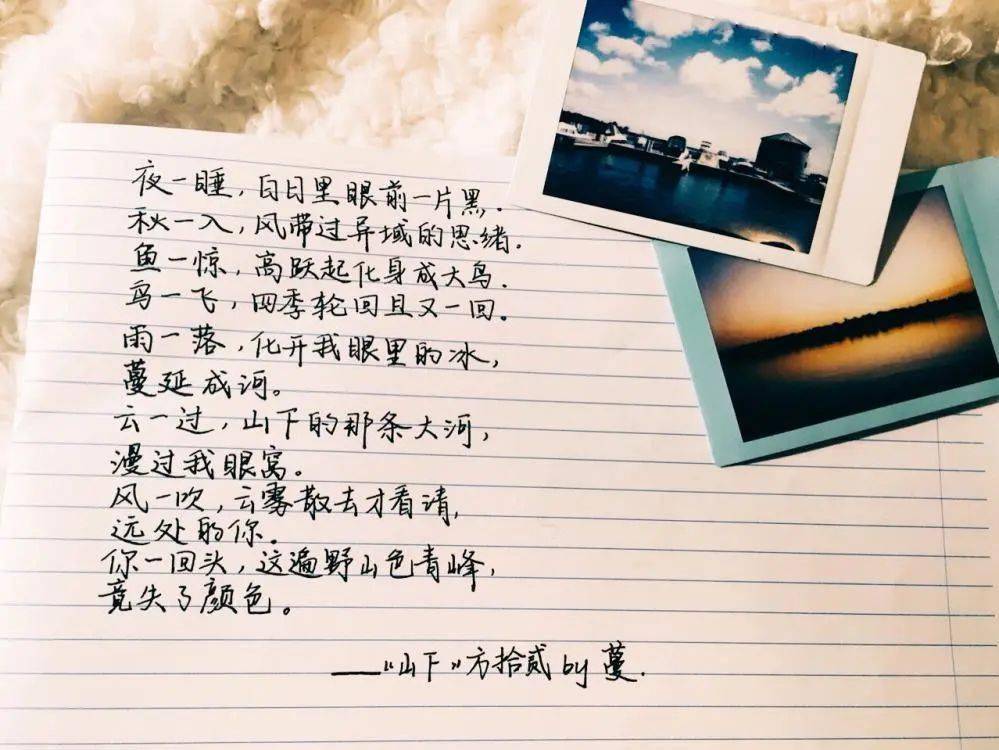 夜一睡，白日里眼前一片黑.
秋一入，风带过异域的思绪.
鱼一惊，高跃起化身成大鸟.
鸟一飞，四季轮回且又一回。
雨一落，化开我眼里的冰，
蔓延成河。
云一过，山下的那条大河，
漫过我眼窝。
风一吹，云雾散去才看清，
远处的你。
你一回头，这遍野山色青峰，
竟失了颜色。
——《山下》方拾贰 by 蔓.